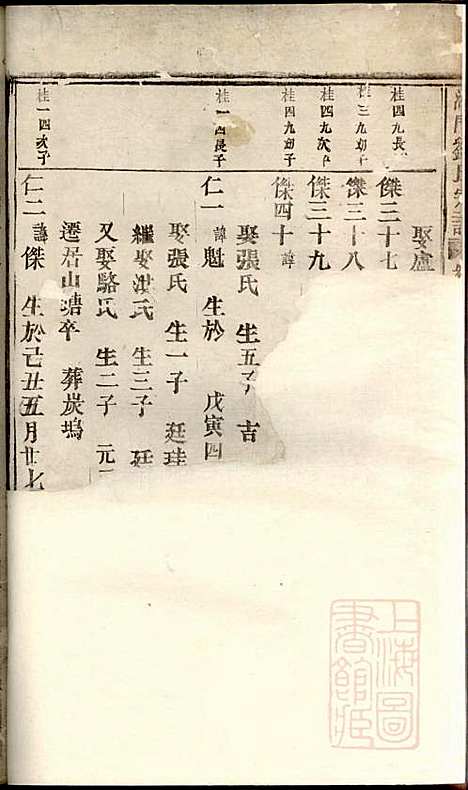 劉氏宗譜
娶盧
桂四九長子
傑三十七
桂三九幼子
傑三十八
桂四九次子
傑三十九
桂四九幼子
傑四十 諱
娶張氏 生五子 吉
桂一四長子
仁一 諱魁 生於 戊寅四
娶張氏 生一子 廷珪
繼娶洪氏 生三子 廷
又娶駱氏 生二子 元
遷居山塘卒 葬炭塢
桂一四次子
仁二 諱傑 生於己丑五月廿七
上海圖書館藏